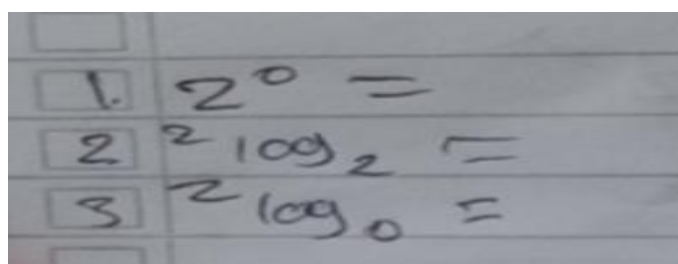 1. 2⁰ =
2 ²log₂ =
3 ²log₀ =